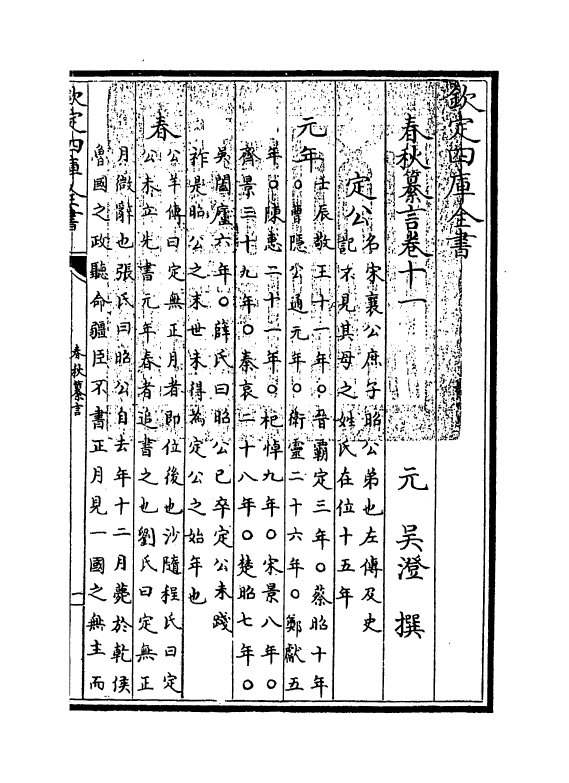 欽定四庫全書
春秋纂言卷十一
元　吳澄　撰
定公
名宋襄公庶子昭公弟也左傳及史
記不見其母之姓氏在位十五年
元年
壬辰敬王十一年○晉霸定三年○蔡昭十年
○曹隱公通元年○衛靈二十六年○鄭獻五
年○陳惠二十一年○杞悼九年○宋景八年○
齊景三十九年○秦哀二十八年○楚昭七年○
吳闔廬六年○薛氏曰昭公已卒定公未踐
祚是昭公之末世未得為定公之始年也
春
公羊傳曰定無正月者即位後也沙隨程氏曰定
公未立先書元年春者追書之也劉氏曰定無正
月微辭也張氏曰昭公自去年十二月薨於乾侯
魯國之政聽命疆臣不書正月見一國之無主而
欽定四庫全書
春秋纂言
一